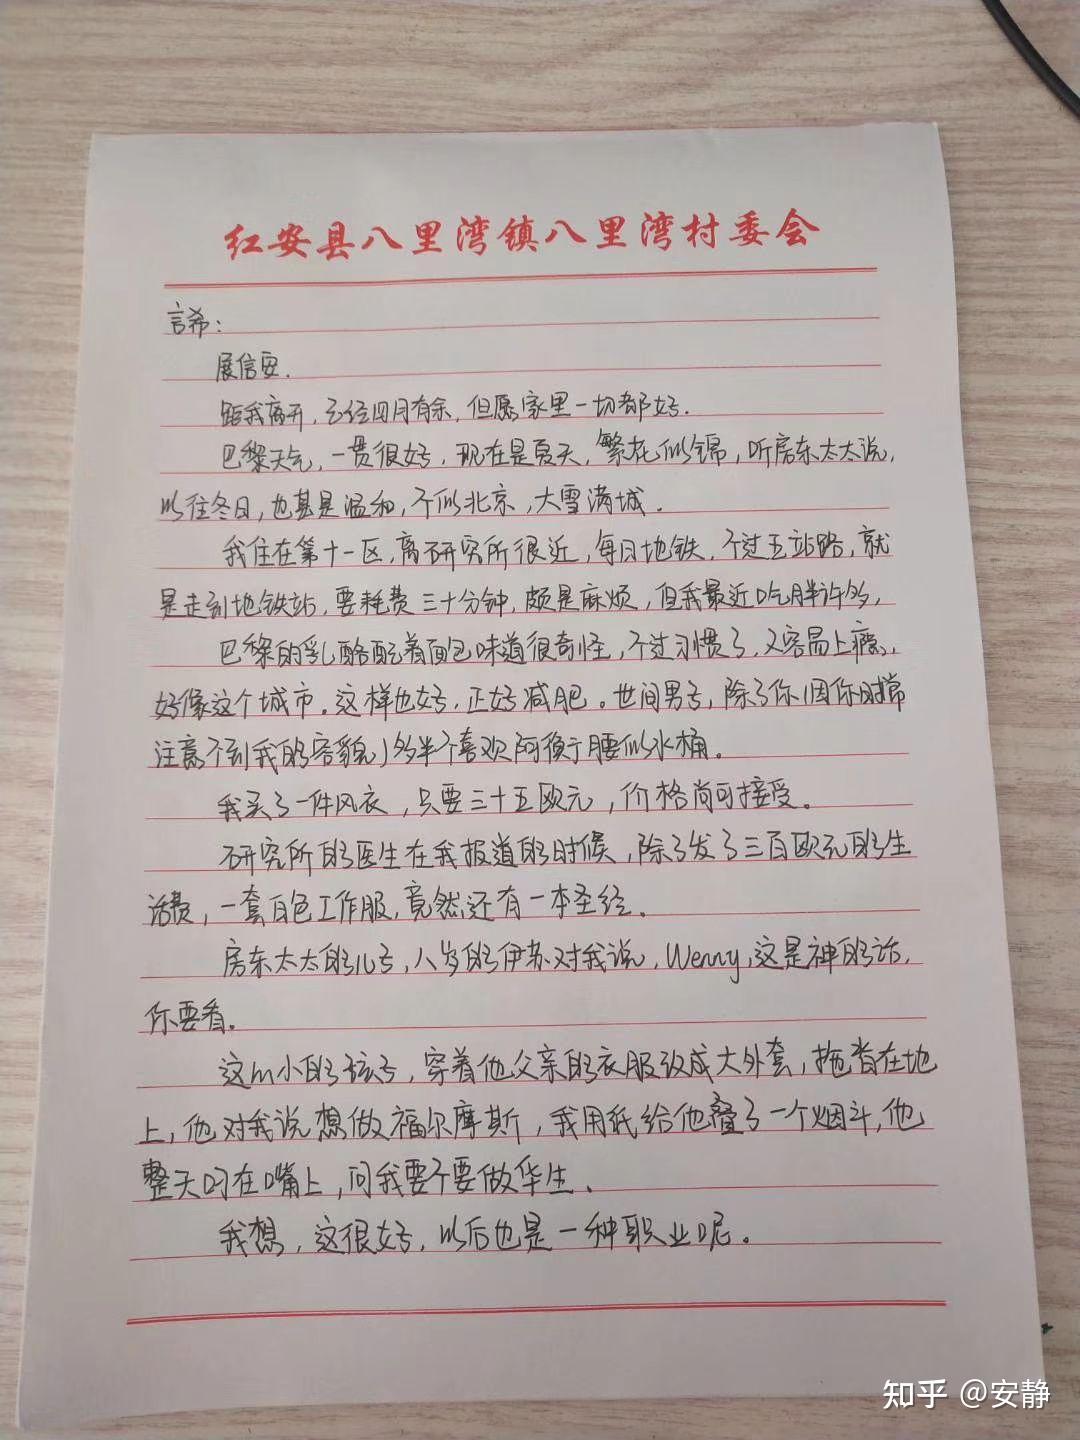 红安县八里湾镇八里湾村委会
言希：
展信安.
距我离开，已经四月有余，但愿家里一切都好.
巴黎天气，一贯很好，现在是夏天，繁花似锦，听房东太太说，
以往冬日，也甚是温和，不似北京，大雪满城.
我住在第十一区，离研究所很近，每日地铁，不过五站路，就
是走到地铁站，要耗费三十分钟，颇是麻烦，但我最近吃胖许多，
巴黎的乳酪配着面包味道很奇怪，不过习惯了，又容易上瘾，
好像这个城市。这样也好，正好减肥。世间男子，除了你（因你时常
注意不到我的容貌）多半不喜欢阿衡于腰似水桶。
我买了一件风衣，只要三十五欧元，价格尚可接受。
研究所的医生在我报道的时候，除了发了三百欧元的生
活费，一套白色工作服，竟然还有一本圣经、
房东太太的儿子，八岁的伊苏对我说，Wenny，这是神的话，
你要看。
这么小的孩子，穿着他父亲的衣服改成大外套，拖沓在地
上，他对我说想做福尔摩斯，我用纸给他叠了一个烟斗，他
整天叼在嘴上，问我要不要做华生、
我想，这很好，以后也是一种职业呢。
知乎 @安静